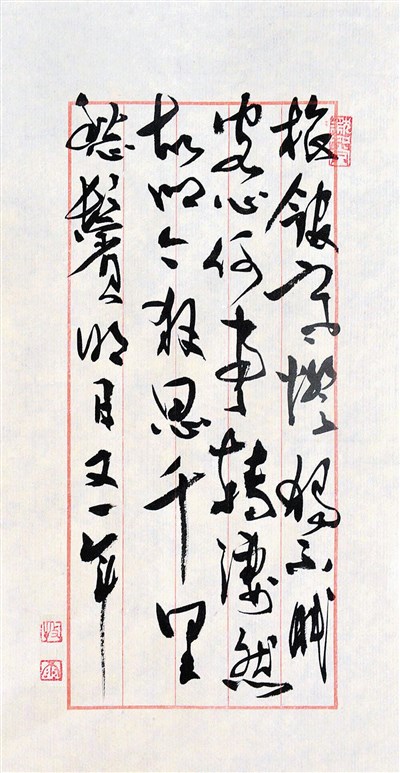 旅館寒燈獨不眠
客心何事轉淒然
故鄉今夜思千里
愁鬢明日又一年